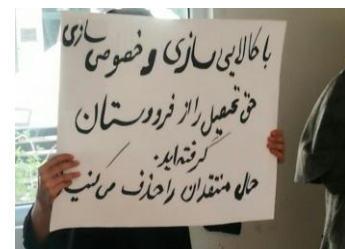 با کالایی سازی و خصوصی سازی
حق تحصیل را از فرودستان
گرفته‌اید.
حال منتقدان را حذف می‌کنید